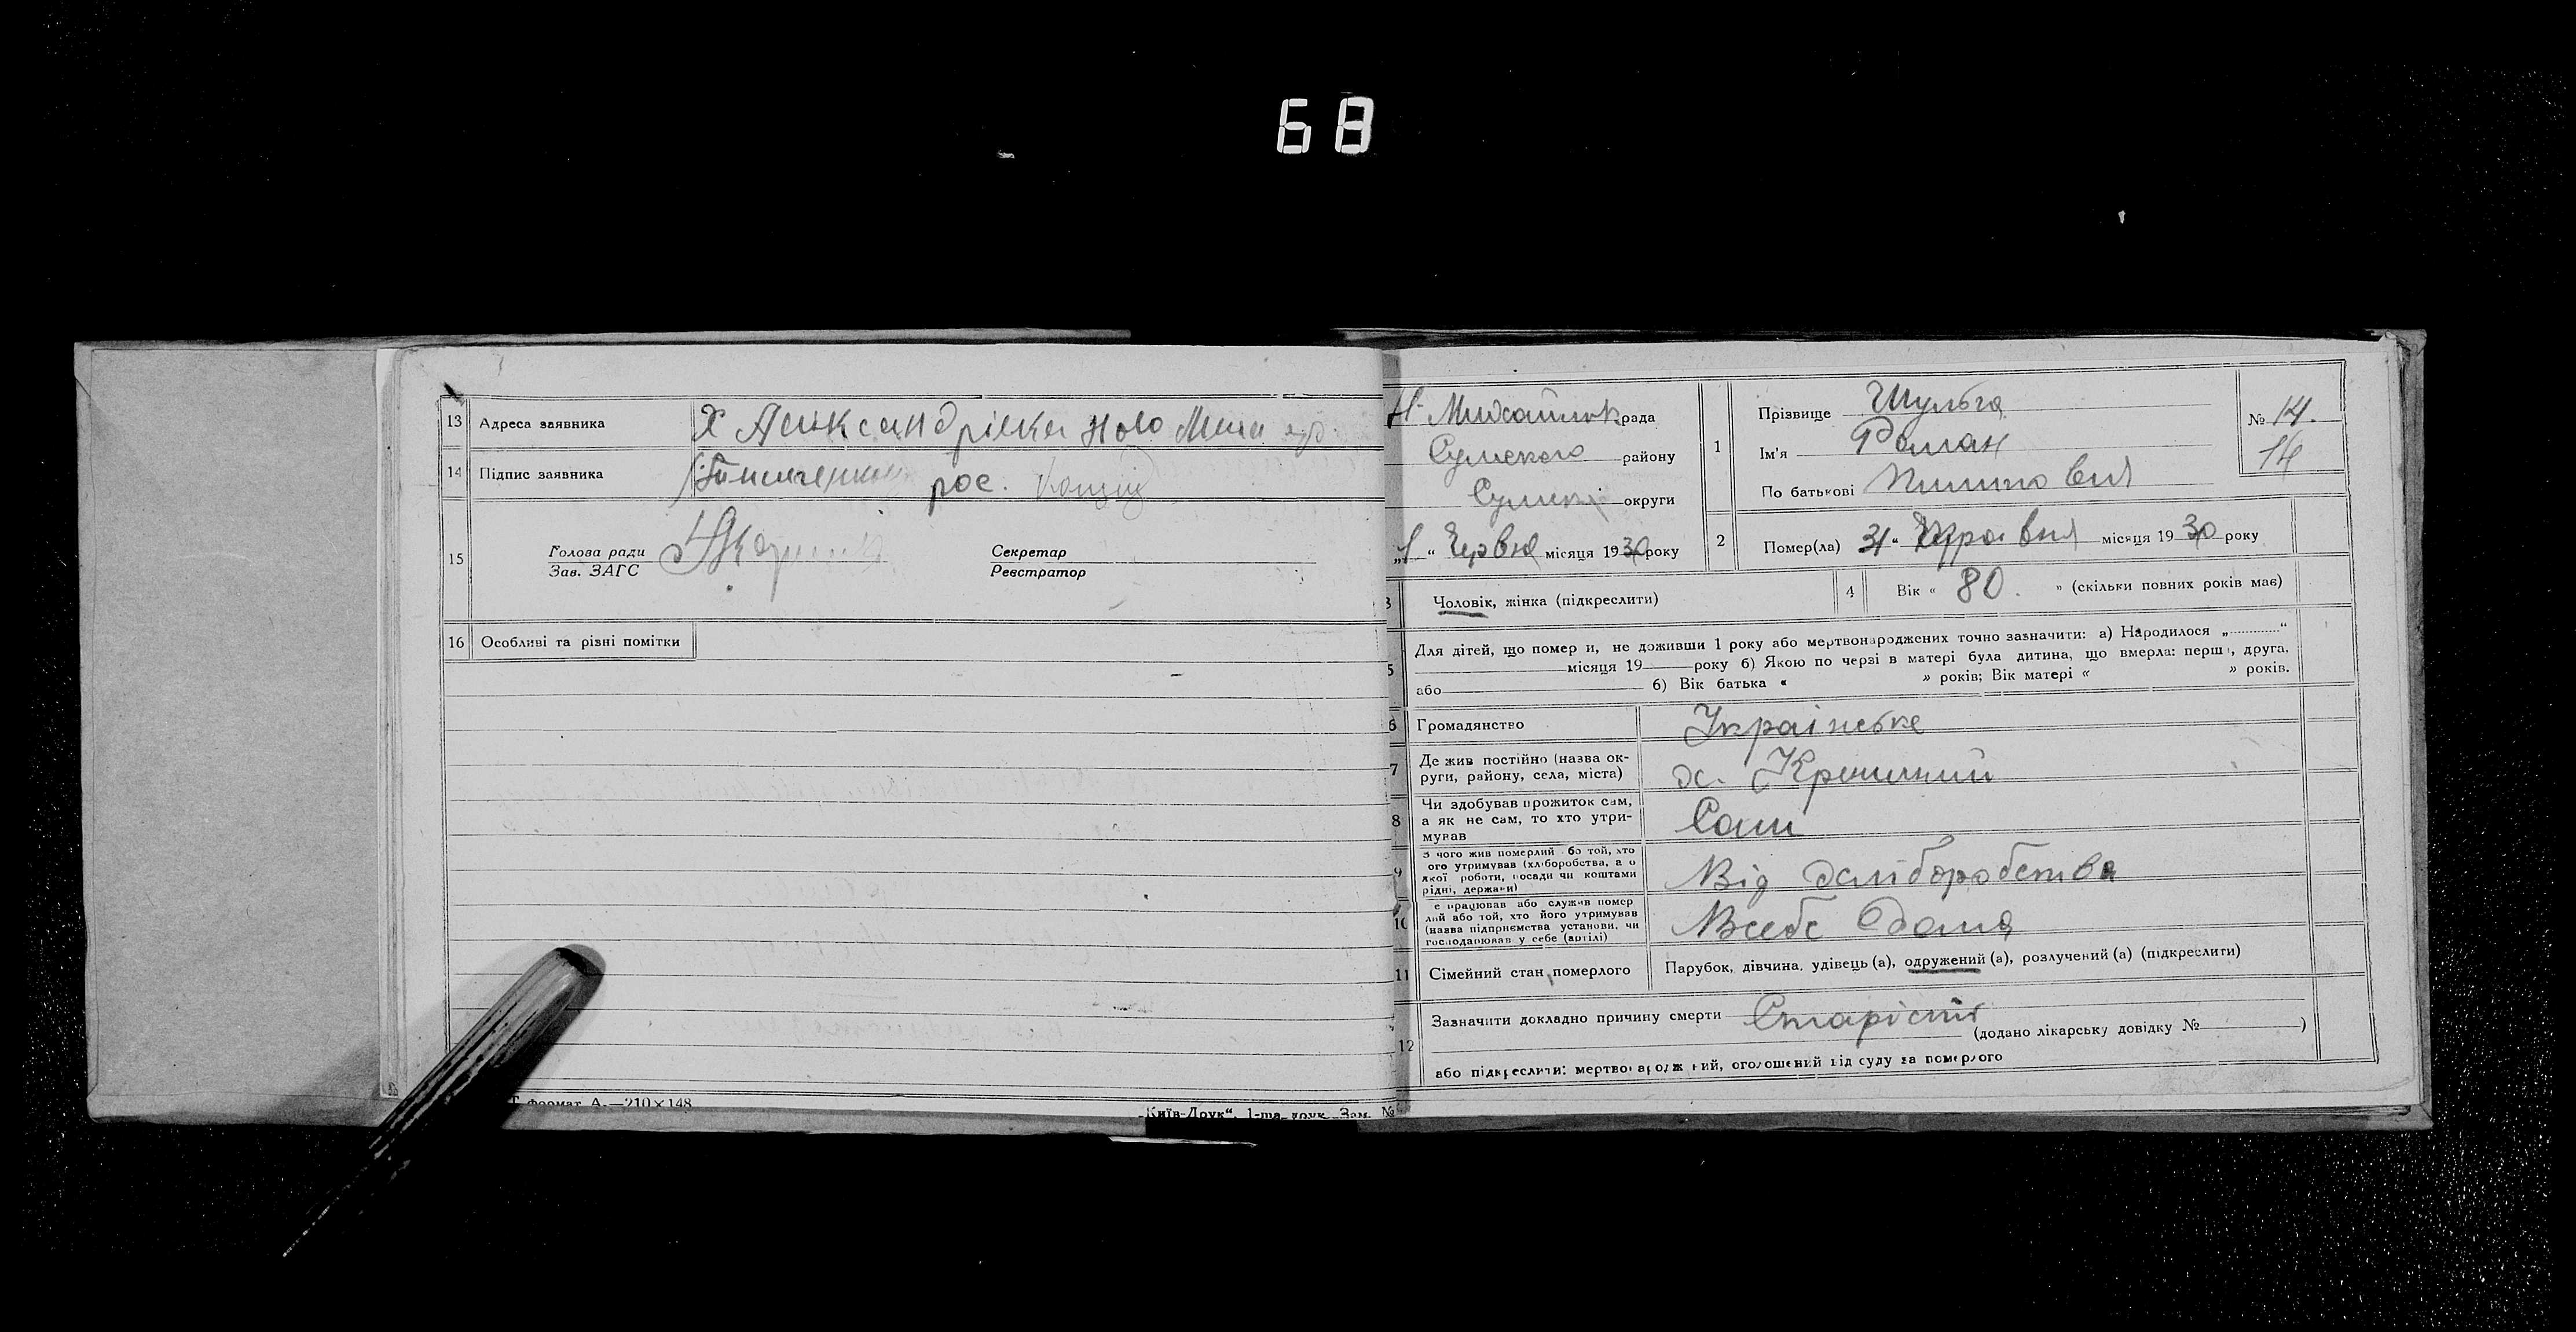 68
13 Адреса заявника Х Алiксандрiвка Ново Миха
14 Підпис заявника рос.
15 Голова ради
Зав. ЗАГС
Секретар
Реєстратор
16 Особливі та різні помітки
формат А.—210×148
„Київ-Друк“. 1-ша друк. Зам. №
Н- Михайлівк рада
Сумского району
Сумскі округи
„1“ Червня місяця 1930 року
1 Прізвище Шульга
Ім'я Роман
По батькові Пилиповия
№ 14.
14
2 Помер(ла) 31 „ Травня місяця 1930 року
3 Чоловік, жінка (підкреслити)
4 Вік « 80. » (скільки повних років має)
5 Для дітей, що помер и, не доживши 1 року або мертвонароджених точно зазначити: а) Народилося „ “
місяця 19 року б) Якою по черзі в матері була дитина, що вмерла: перша, друга,
або б) Вік батька « » років; Вік матері « » років.
6 Громадянство Українське
7 Де жив постійно (назва ок-
руги, району, села, міста) х.
8 Чи здобував прожиток сам,
а як не сам, то хто утри-
мував Сам
9 З чого жив померлий або той, хто
його утримував (хліборобства, а о
якої роботи, посади чи коштами
рідні, держави) Від хліборобства
10 е працював або служив помер
лий або той, хто його утримував
(назва підприємства установи, чи
господарював у себе (артілі) Всебе дома
11 Сімейний стан померлого Парубок, дівчина, удівець (а), одружений (а), розлучений (а) (підкреслити)
12 Зазначити докладно причину смерти Старість
(додано лікарську довідку № )
або підкреслити: мертвонароджений, оголошений від суду за померлого